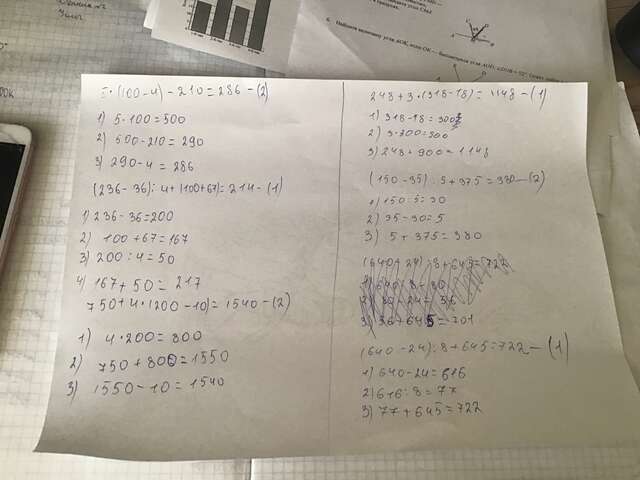 6. Найдите величину угла АОК, если ОК —
5·(100-4)-210=286-(2)
1) 5·100=500
2) 500-210=290
3) 290-4=286
(236-36):4+(100+67)=214-(1)
1) 236-36=200
2) 100+67=167
3) 200:4=50
4) 167+50=217
750+4·(200-10)=1540-(2)
1) 4·200=800
2) 750+800=1550
3) 1550-10=1540
248+3·(318-18)=1148-(1)
1) 318-18=300
2) 3·300=900
3) 248+900=1148
(150-35):5+375=380-(2)
1) 150:5=30
2) 35-30=5
3) 5+375=380
(640+24):8+645=722
3) 56+645=701
(640-24):8+645=722-(1)
1) 640-24=616
2) 616:8=77
3) 77+645=722